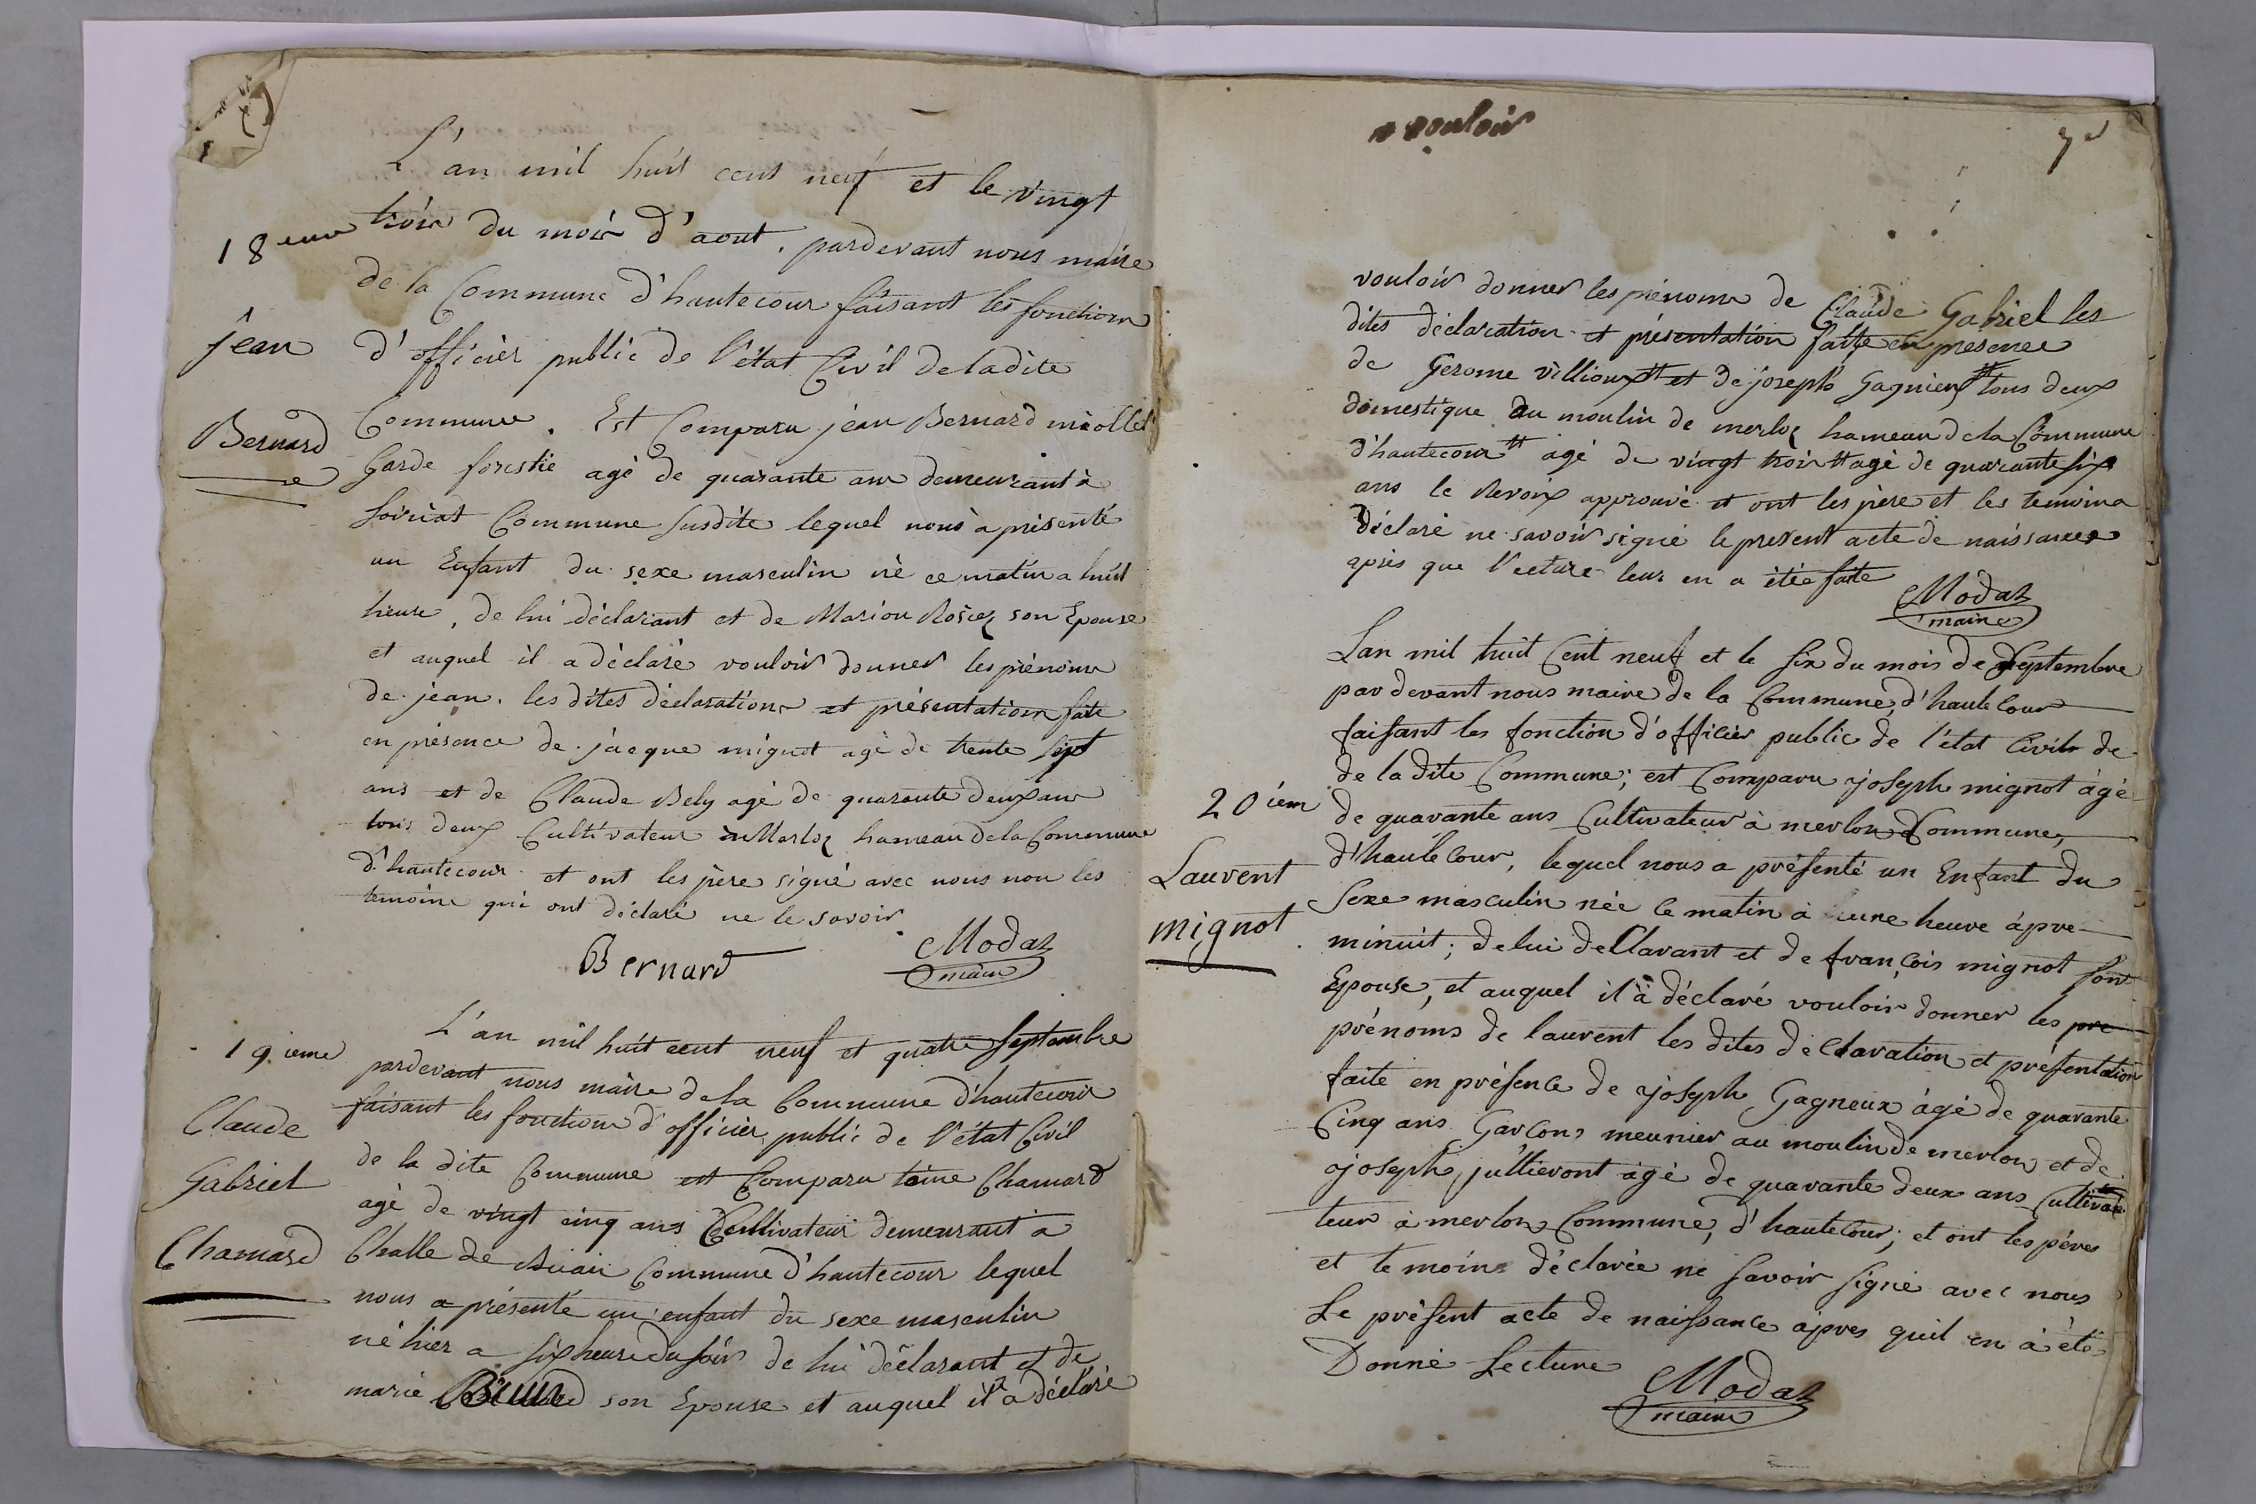 L'an mil huit cent neuf et le vingt
18eme trois du mois d'aout. pardevant nous maire
de la Commune d'hautecour faisant les fonctions
jean d'officier public de l'état Civil de la dite
Bernard Commune. Est Comparu jean Bernard
Garde forestie agé de quarante ans demeurant à
Commune susdite lequel nous a présenté
un Enfant du sexe masculin né ce matin a huit
heure, de lui déclarant et de Marion son Epouse
et auquel il a déclaré vouloir donner les prénoms
de jean. les dites déclarations et présentation faite
en présence de jacque mignot agé de trente sept
ans et de Claude Bely agé de quarante deux ans
tous deux Cultivateur à Merloz hameau de la Commune
d'hautecour et ont les père signé avec nous non les
temoins qui ont déclaré ne le savoir
Bernard Modaz
maire
L'an mil huit cent neuf et quatre septembre
19ieme pardevant nous maire de la Commune d'hautecour
faisant les fonctions d'officier public de l'état Civil
Claude
de la dite Commune est Comparu Chamard
Gabriel
agé de vingt cinq ans Cultivateur demeurant a
Chamard Challe de Commune d'hautecour lequel
nous a présenté un enfant du sexe masculin
né hier a six heure du soir de lui déclarant et de
marie son Epouse et auquel il a déclaré
vouloir
vouloir donner les prénoms de Claude Gabriel les
dites déclaration et présentation faite en presence
de Gerome villioux # et de joseph Gagnieux # tous deux
domestique au moulin de merloz hameau de la Commune
d'hautecour # agé de vingt trois # agé de quarante six
ans le Renvoix approuvé et ont les père et les temoins
déclaré ne savoir signé le present acte de naissance
après que lecture leur en a étée faite
Modaz
maire
Lan mil huit Cent neuf et le six du mois de Septembre
par devant nous maire de la Commune, d'haute Cour
faisant les fonction d'officier public de l'état Civil de
de la dite Commune; est Comparu joseph mignot âgé
20iem de quarante ans Cultivateur à merloz Commune,
d'haute Cour, lequel nous a présenté un Enfant du
Laurent
Sexe masculin née ce matin à heure âpre
mignot
minuit; de lui deClarant et de françois mignot son
Epouse, et auquel il à déclaré vouloir donner les pre
prénoms de laurent les dites déClaration et présentation
faite en présence de joseph Gagneux âgé de quarante
Cinq ans Garcons meunier au moulin de merloz et de
joseph jullieront âgé de quarante deux ans Cultiva
teur à merloz Commune, d'haute Cour; et ont les péres
et temoins déclarée ne savoir signé avec nous
Le présent acte de naissance apres quil en à été
Donné Lecture Modaz
maire